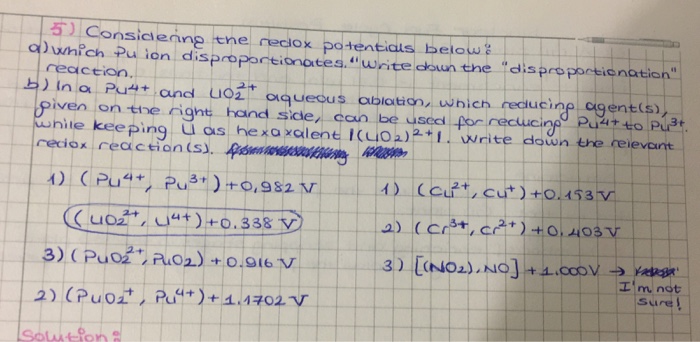 5) Considering the redox potentials below:
a) which Pu ion disproportionates. "Write down the "disproportionation"
reaction.
b) In a Pu4+ and UO2 2+ aqueous ablation, which reducing agent(s),
given on the right hand side, can be used for reducing Pu4+ to Pu3+.
while keeping U as hexaxalent 1(UO2)2+1. Write down the relevant
redox reaction(s).
1) (Pu4+, Pu3+) +0,982 V
1) (Cu2+, Cu+) +0.153 V
((UO2 2+, U4+) +0.338 V)
2) (Cr3+, Cr2+) +0,403 V
3) (PuO2 2+, PuO2) +0.916 V
3) [(NO2), NO] +1.000V →
I'm not
sure!
2) (PuO2+, Pu4+) +1.1702 V
Solution: